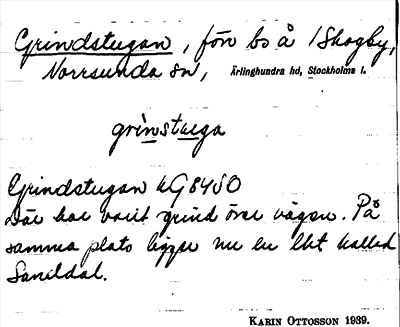 Grindstugan, förr bs å 1 Skogby,
Norrsunda sn, Ärlinghundra hd, Stockholms l.
grinstuga
Grindstugan kG8450
Där har varit grind över vägen. På
samma plats ligger nu en lht kallad
Sanddal.
KARIN OTTOSSON 1939.